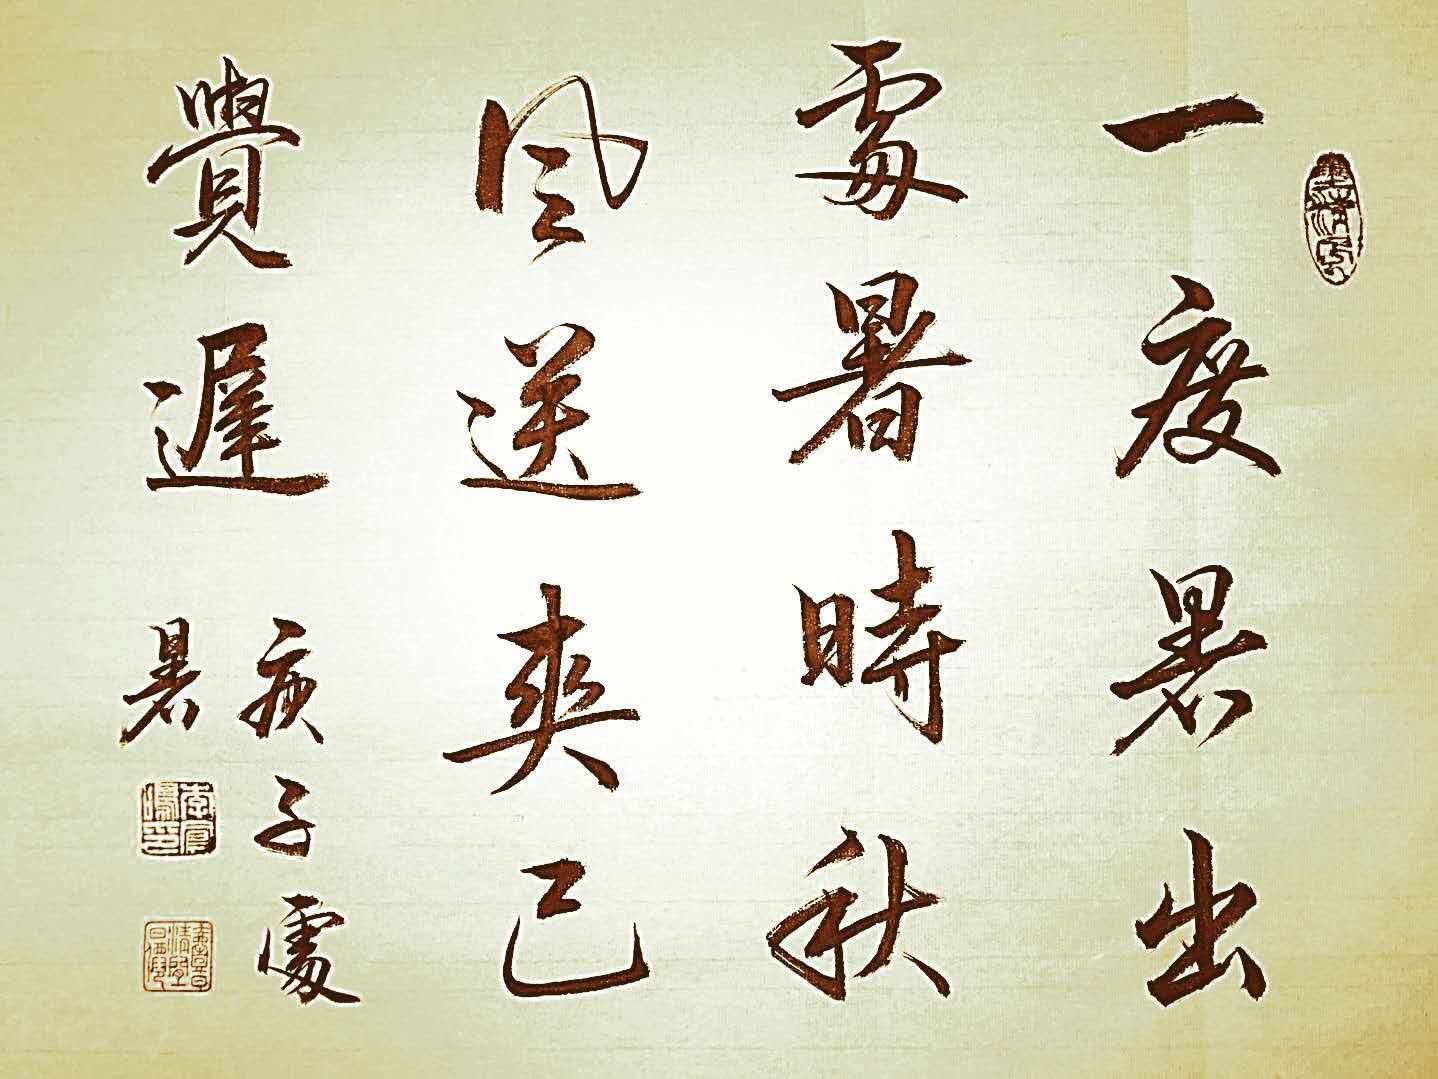 一度暑出
處暑時秋
風送爽已
覺遲
庚子處
暑